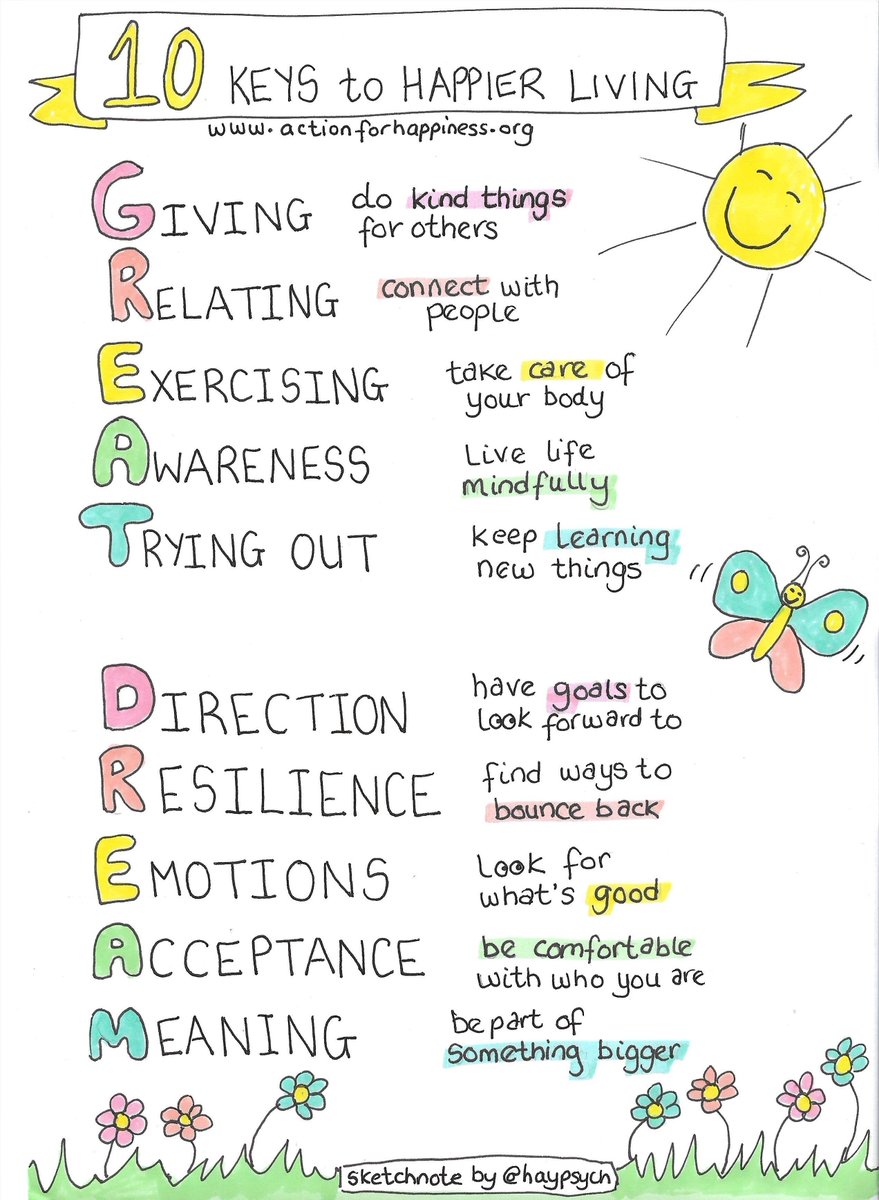 10 KEYS to HAPPIER LIVING
www.actionforhappiness.org
GIVING do kind things
for others
RELATING connect with
people
EXERCISING take care of
your body
AWARENESS Live life
mindfully
TRYING OUT keep learning
new things
DIRECTION have goals to
look forward to
RESILIENCE find ways to
bounce back
EMOTIONS Look for
what's good
ACCEPTANCE be comfortable
with who you are
MEANING be part of
something bigger
sketchnote by @haypsych